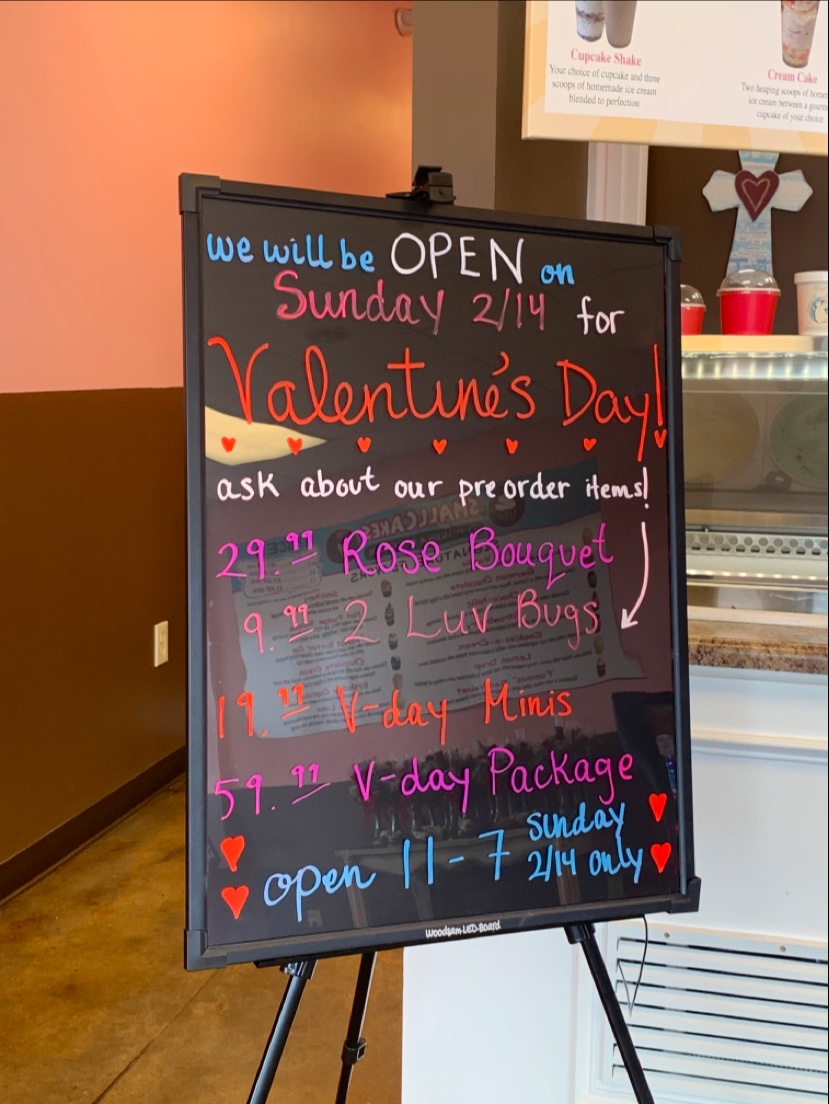 Cupcake Shake
Your choice of cupcake and three
scoops of homemade ice cream
blended to perfection
Cream Cake
Two heaping scoops of
ice cream between a
cupcake of your choice
we will be OPEN on
Sunday 2/14 for
Valentine's Day!
ask about our preorder items!
29.99 Rose Bouquet
9.99 2 Luv Bugs
19.99 V-day Minis
59.99 V-day Package
open 11-7 Sunday
2/14 only
Woodsam-LED-Board
SMALLCAKES